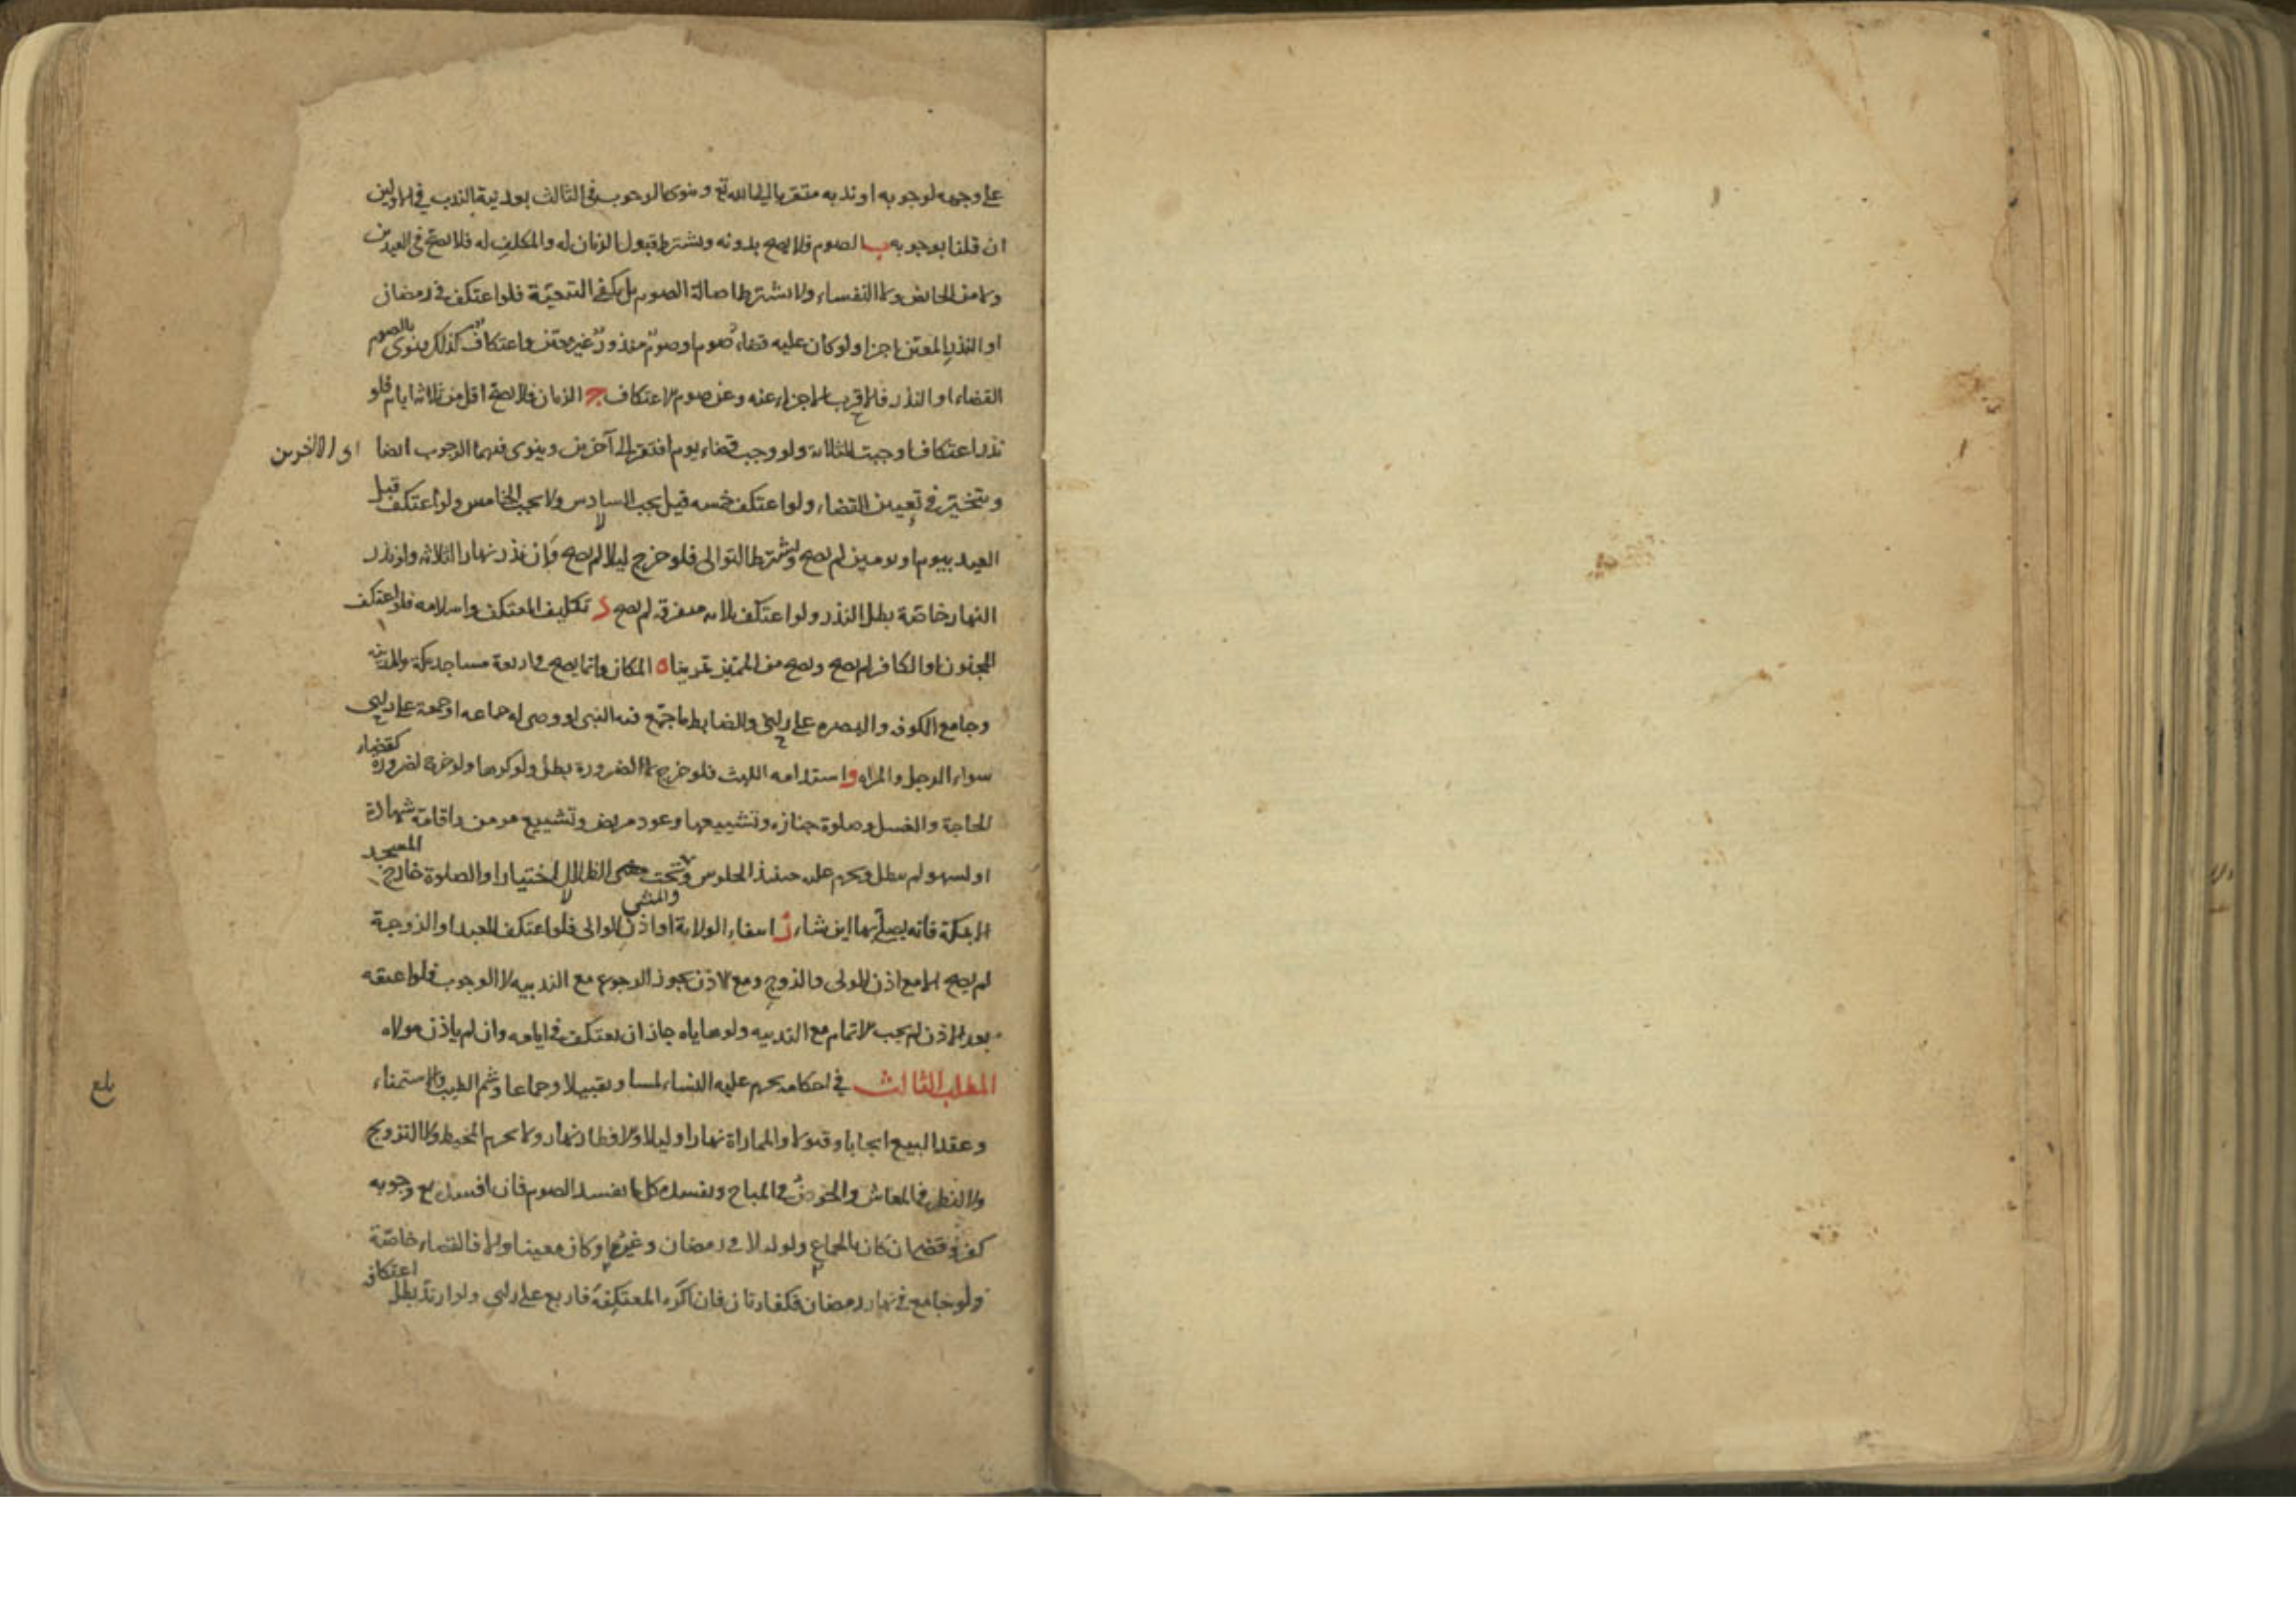 على وجهه لوجوبه او ندبه متقربا الى الله تع وينوى الوجوب فى الثالث بعد نية الندب في الاولين
ان قلنا بوجوبه ب الصوم فلا يصح بدونه ويشترط قبول الزمان له والمكلف له فلا يصح فى العيدين
ولا من الحائض ولا النفساء ولا يشترط اصالة الصوم بل يكفى التبعية فلو اعتكف فى رمضان
او النذر المعين اجزا ولو كان عليه قضاء صوم او صوم منذور غير معين واعتكاف كذلك ينوى بالصوم
القضاء او النذر فلاقرب الاجزاء عنه وعن صوم الاعتكاف ج الزمان فلا يصح اقل من ثلاثة ايام فلو
نذر اعتكافا وجبت الثلاثة ولو وجب قضاء يوم افتقر الى آخرين وينوى فيهما الوجوب ايضا
اى الآخرين
ويتخير فى تعيين القضاء ولو اعتكف خمسه قيل يجب السادس ولا يجب الخامس ولو اعتكف قبل
العيد بيوم او يومين لم يصح ويشترط التوالى فلو خرج ليلا لم يصح وان نذر نهار الثلاثه ولو نذر
النهار خاصة بطل النذر ولو اعتكف ثلاثه متفرقه لم يصح د تكليف المعتكف واسلامه فلو اعتكف
المجنون او الكافر لم يصح ويصح من المميز تمرينا ه المكان وانما يصح فى اربعة مساجد مكة والمدينه
وجامع الكوفه والبصره على راى والضابط ما جمع فيه النبى او وصى له جماعه او جمعة على راى
سواء الرجل والمراه و استدامه اللبث فلو خرج لا لضرورة بطل ولو كرها ولو خرج لضرورة كقضاء
الحاجة والغسل وصلوة جنازه وتشييعها وعود مريض وتشييع مومن واقامة شهادة
او لسهو لم يبطل ويحرم عليه حينئذ الجلوس وتحت الظلال اختيارا والصلوة خارج المسجد
والمشى
الا بمكة فانه يصلى بها اين شاء ز انتفاء الولاية او اذن الوالى فلو اعتكف العبد او الزوجة
لم يصح الا مع اذن المولى والزوج ومع الاذن يجوز الرجوع مع الندبيه لا الوجوب فلو اعتقه
بعد الاذن لم يجب الاتمام مع الندبيه ولو هاياه جاز ان يعتكف فى ايامه وان لم ياذن مولاه
المطلب الثالث فى احكامه يحرم عليه النساء لمسا وتقبيلا وجماعا وشم الطيب والاستمناء
بلغ
وعقد البيع ايجابا وقبولا والمماراة نهارا وليلا والافطار نهارا ولا يحرم المخيط ولا التزويج
ولا النظر فى المعاش والخوض فى المباح ويفسده كل ما يفسد الصوم فان افسده مع وجوبه
كفر وقضى ان كان بالجماع ولو ليلا فى رمضان وغيره او كان معينا والا فالقضاء خاصة
ولو جامع فى نهار رمضان فكفارتان فان اكره المعتكفة فاربع على راى ولو ارتد بطل اعتكافه